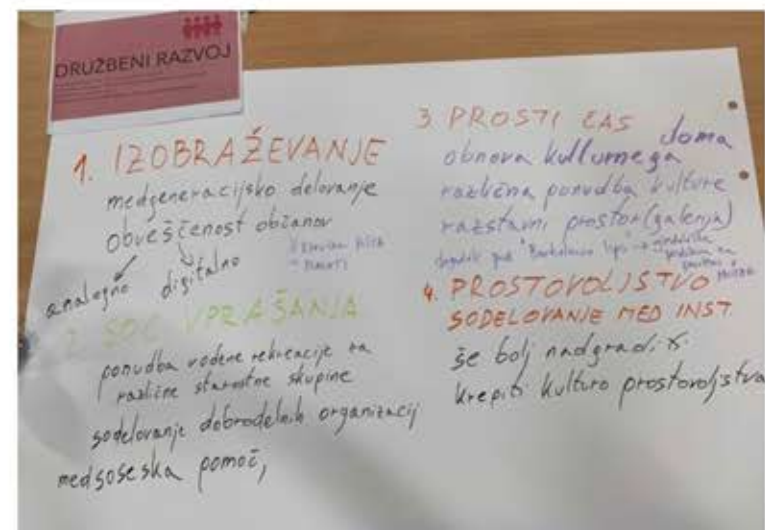 DRUŽBENI RAZVOJ
1. IZOBRAŽEVANJE
medgeneracijsko delovanje
obveščenost občanov
analogno digitalno
2. SOC. VPRAŠANJA
ponudba vodene rekreacije za
različne starostne skupine
sodelovanje dobrodelnih organizacij
medsoseska pomoč,
3 PROSTI ČAS
obnova kulturnega doma
različna ponudba kulture
razstavni prostor (galerija)
4. PROSTOVOLJSTVO
SODELOVANJE MED INST.
še bolj nadgraditi
krepiti kulturo prostovoljstva